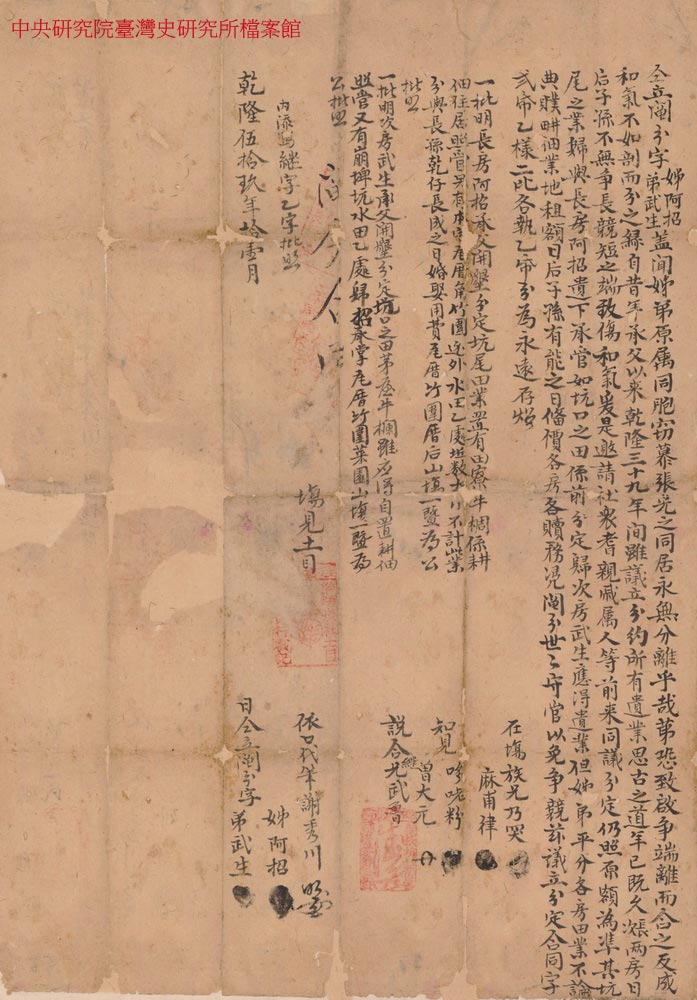 中央研究院臺灣史研究所檔案館
仝立鬮分字姊阿招弟武生蓋聞姊弟原屬同胞窃慕張公之同居永無分離乎哉苐恐致啟争端離而合之反成
和氣不如剖而分之緣自昔年承父以來乾隆三十九年間雖議立分約所有遺業思古之道年已既久漲两房日
后子孫不無争長競短之端致傷和氣爰是邀請社衆耆親戚属人等前来同議分定仍照原額為準其坑
尾之業歸與長房阿招遺下承官如坑口之田係前分定歸次房武生應得遺業但姊弟平分各房田業不論
典贌畊佃業地租額日后子孫有能之日俻價各房各贖務凴鬮分世〻守官以免争競兹議立分定合同字
弍帋乙樣二比各執乙帋分為永遠存炤
一批明長房阿招承父開墾分定坑尾田業置有田寮牛椆係耕
佃住居照管另有厝角竹圍迯外水田乙處坵数不計此業
分與長孫乾仔長成之日婚娶用費尾厝竹圍厝后山埔一暨為公
批照
一批明次房武生承父開墾分定坑口之田茅屋牛欄雖應得自置耕佃
照管又有崩埤坑水田乙處歸招承掌尾厝竹圍菜園山埔一暨為
公批照
内添継字乙字批照
乾隆伍拾玖年拾壹月
塲見土目
在塲族兄乃哭
麻甫律
知見
曽大元
説合継兄武魯
依口代筆謝秀川
姊阿招
日仝立鬮分字弟武生